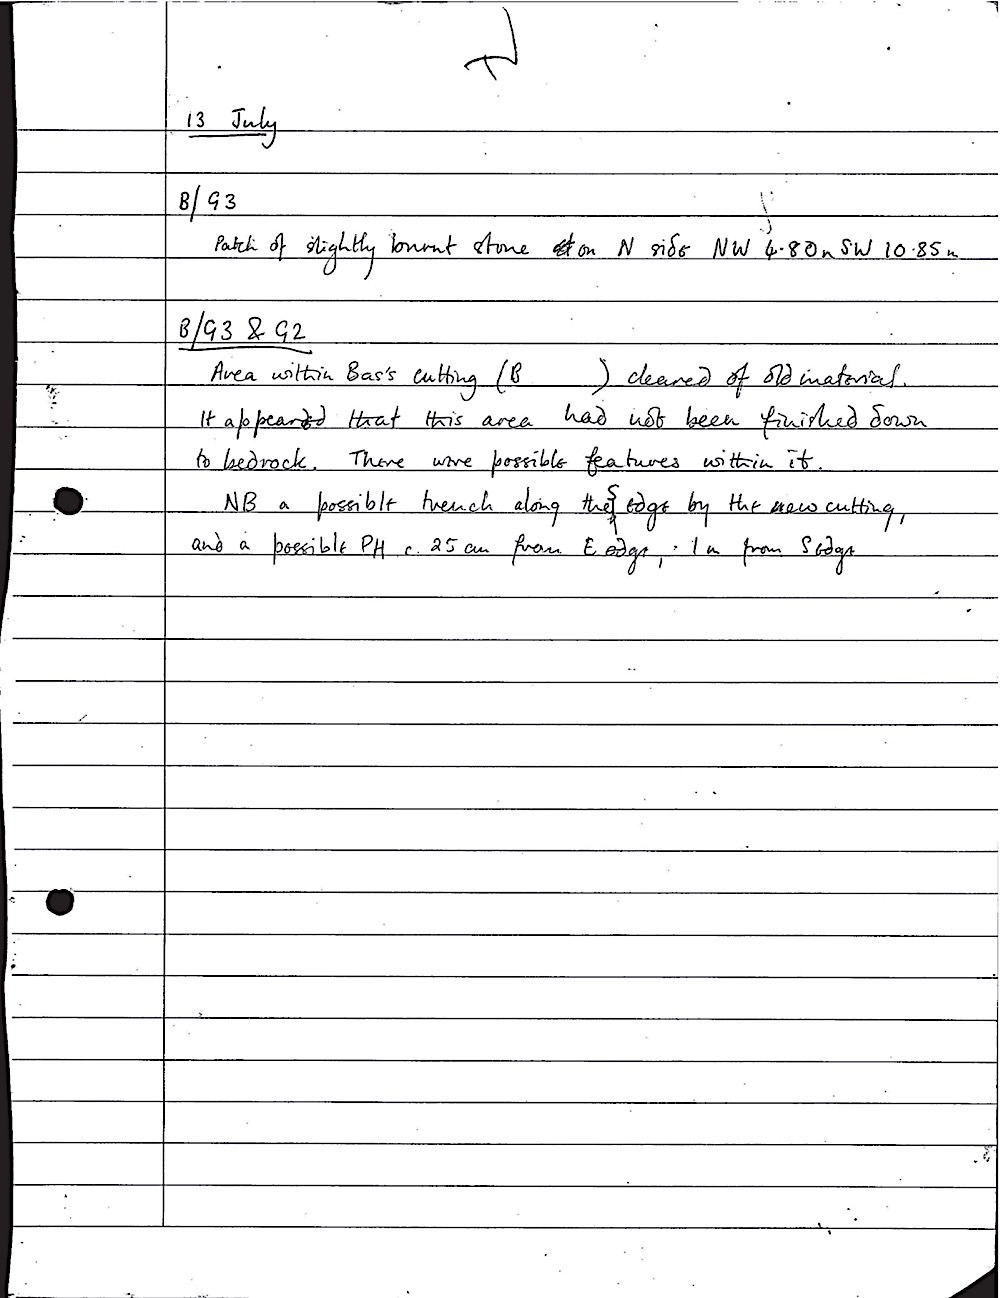 13 July
B/G3
Patch of slightly burnt stone on N side NW 4.80m SW 10.85m
B/G3 & G2
Area within Bas's cutting (B ) cleared of old material.
It appeared that this area had not been finished down
to bedrock. There were possible features within it.
NB a possible trench along the S edge by the new cutting,
and a possible PH c. 25 cm from E edge, 1m from S edge